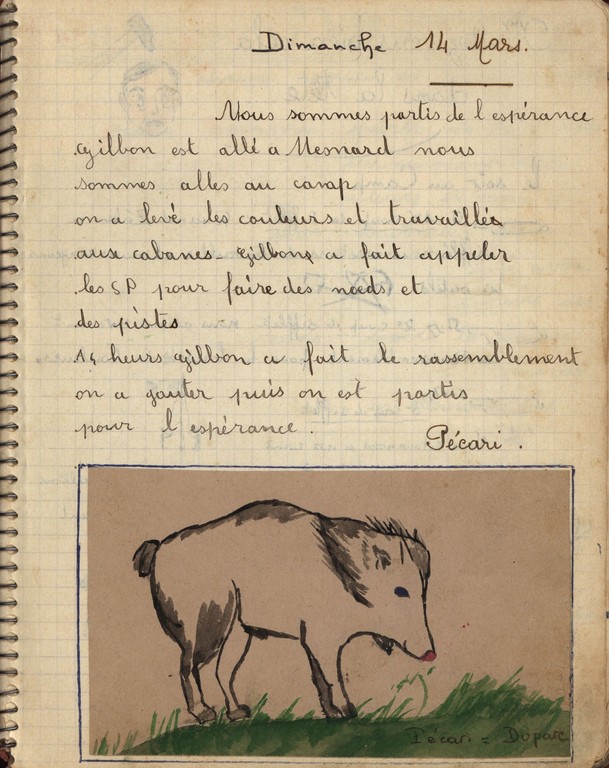 Dimanche 14 Mars.
Nous sommes partis de l espérance
Gilbon est allé a Mesnard nous
sommes allés au camp
on a levé les couleurs et travaillés
aux cabanes - Gilbons a fait appeler
les SP pour faire des nœds et
des pistes
14 heurs Gilbon a fait le rassemblement
on a gouter puis on est partis
pour l espérance.
Pécari.
Pécari = Duparc